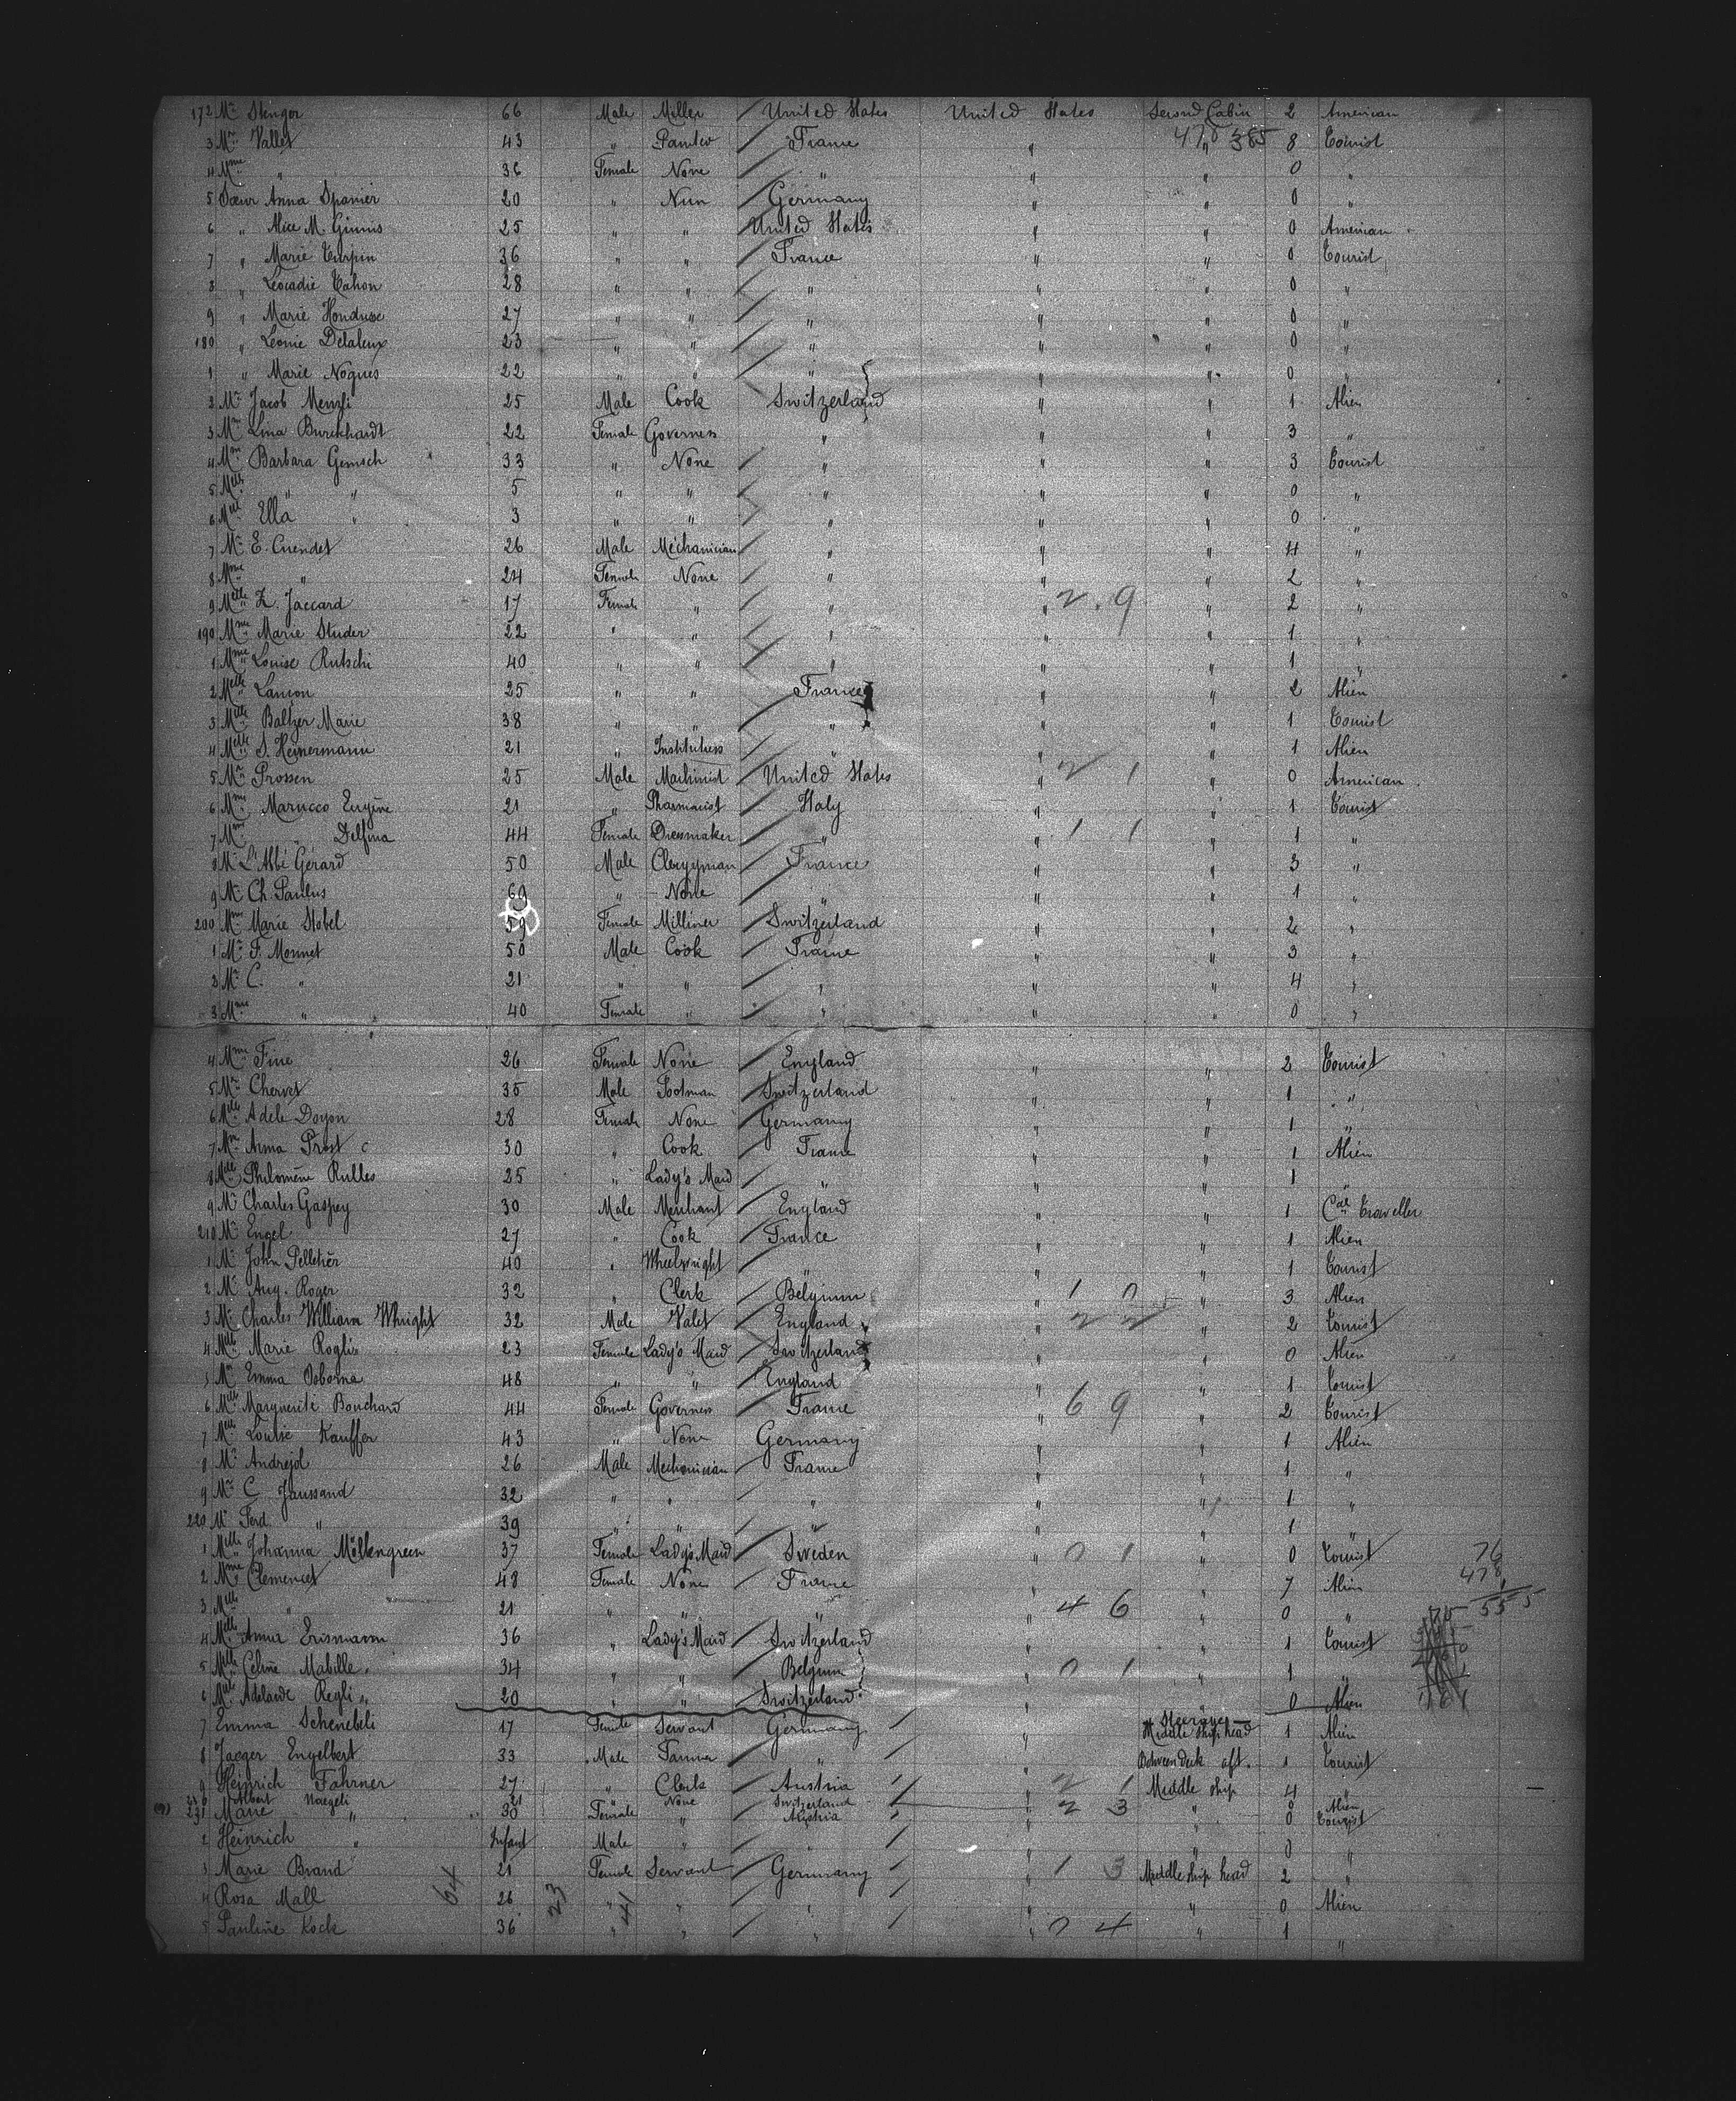 172 Mr Stenger 66 Male Miller United States United States Second Cabin 2 American
3 Mr Vallet 43 " France " 478 365 8 Tourist
4 Mme " 36 Female None " " " 0 "
5 Soeur Anna Spanier 20 " Nun Germany " " 0 "
6 " Alice M. Ginnis 25 " " United States " " 0 American
7 " Marie Turpin 36 " " France " " 0 Tourist
8 " Léocadie Cahon 28 " " " " " 0 "
9 " Marie 27 " " " " " 0 "
180 " Léonie Delaleux 23 " " " " " 0 "
1 " Marie Nogues 22 " " " " " 0 "
2 Mr Jacob Menzli 25 Male Cook Switzerland " " 1 Alien
3 Mme Lina Burckhardt 22 Female Governess " " " 3 "
4 Mme Barbara Gemsch 33 " None " " " 3 Tourist
5 Melle " " 5 " " " " " 0 "
6 Melle Ella " 3 " " " " " 0 "
7 Mr E. Cuendet 26 Male Méchanician " " " 4 "
8 Mme " 24 Female None " " " 2 "
9 Melle Z. Jaccard 17 Female " " " 2 9 " 2 "
190 Mme Marie Studer 22 " " " " " 1 "
1 Mme Louise Rutschi 40 " " " " " 1 "
2 Melle Lançon 25 " " France " " 2 Alien
3 Melle Baltzer Marie 38 " " " " " 1 Tourist
4 Melle S. Heinermann 21 " " " " 1 Alien
5 Mr Prossen 25 Male Machinist United States " 2 1 " 0 American
6 Mme Marucco Eugène 21 " Pharmacist Italy " " 1 Tourist
7 Mme " Delfina 44 Female Dressmaker " " 1 1 " 1 "
8 Mr L'Abbé Gérard 50 Male Clergyman France " " 3 "
9 Mr Ch. Paulus 69 " None " " " 1 "
200 Mme Marie Stobel 59 Female Milliner Switzerland " " 2 "
1 Mr F. Monnet 50 Male Cook France " " 3 "
2 Mr C. " 21 " " " " " 4 "
3 Mme " 40 Female " " " " 0 "
4 Mme Fine 26 Female None England " " 2 Tourist
5 Mr Chervet 35 Male Footman Switzerland " " 1 "
6 Melle Adèle Doyon 28 Female None Germany " " 1 "
7 Mme Anna Prost 30 " Cook France " " 1 Alien
8 Melle Philomène Rulles 25 " Lady's Maid " " " 1 "
9 Mr Charles Gaspey 30 Male Merchant England " " 1 Cal Traveller
210 Mr Engel 27 " Cook France " " 1 Alien
1 Mr John Pelletier 40 " Wheelwright " " " 1 Tourist
2 Mr Aug. Roger 32 " Clerk Belgium " 1 0 " 3 Alien
3 Mr Charles William Whright 32 Male Valet England " 2 2 " 2 Tourist
4 Melle Marie Rogli 23 Female Lady's Maid Switzerland " " 0 Alien
5 Mme Emma Osborna 48 " " England " " 1 Tourist
6 Melle Marguerite Bouchard 44 Female Governess France " 6 9 " 2 Tourist
7 Melle Louise Kauffer 43 " None Germany " " 1 Alien
8 Mr Andrejol 26 Male Mechanician France " " 1 "
9 Mr C Jaussand 32 " " " " " 1 "
220 Mr Ferd. " 39 " " " " " 1 "
1 Melle Johanna Möllengreen 37 Female Lady's Maid Sweden " 0 1 " 0 Tourist 76
2 Mme Clemencet 48 Female None France " " 7 Alien 478
3 Melle " 21 " " " " 4 6 " 0 " 555
4 Melle Anna Erismann 36 " Lady's Maid Switzerland " " 1 Tourist
5 Melle Celine Mabille 34 " " Belgium " 0 1 " 1 "
6 Melle Adelaide Regli 20 " " Switzerland " " 0 Alien
7 Emma Schenebeli 17 Female Servant Germany " Steerage Middle ship head 1 Alien
8 Jaeger Engelbert 33 Male " " Between deck aft. 1 Tourist
9 Heinrich Fahrner 27 " Clerk Austria " 2 1 Middle ship 4 "
230 Albert Naegeli 21 " None Switzerland " 0 Alien
231 Marie " 30 Female " Austria " 2 3 " 0 Tourist
2 Heinrich " Infant Male " " " " 0 "
3 Marie Brand 21 Female Servant Germany " 1 3 Middle ship head 2 "
4 Rosa Mall 26 " " " " " 0 Alien
5 Pauline Kock 36 " " " " 0 4 " 1 "
64 23 41